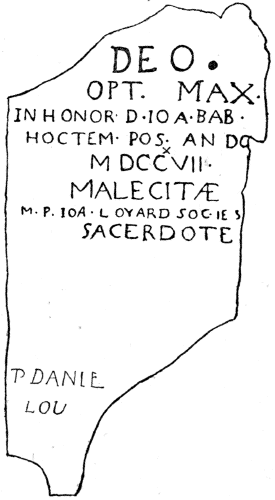 DEO.
OPT. MAX.
IN HONOR D·IOA·BAB·
HOCTEM· POS· AN DO
MDCCXVII·
MALECITÆ
M. P. IOA· LOYARD SOC·IES
SACERDOTE
P DANIE
LOU